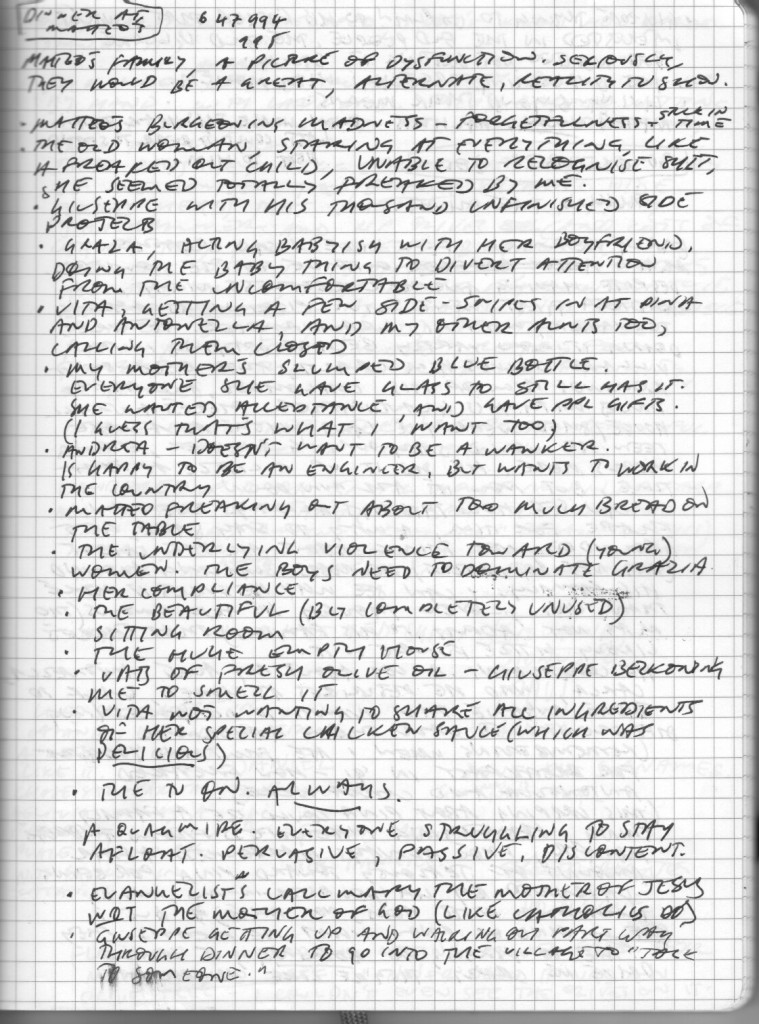 DINNER AT MATTEO'S
647994
195
MATTEO'S FAMILY, A PICTURE OF DYSFUNCTION. SERIOUSLY,
THEY WOULD BE A GREAT, ALTERNATE, REALITY TV SHOW.
• MATTEO'S BURGEONING MADNESS - FORGETFULNESS - STUCK IN TIME
• THE OLD WOMAN, STARING AT EVERYTHING, LIKE
A FREAKED OUT CHILD, UNABLE TO RECOGNISE SHIT,
SHE SEEMED TOTALLY FREAKED BY ME.
• GIUSEPPE WITH HIS THOUSAND UNFINISHED SIDE
PROJECTS
• GRAZIA, ACTING BABYISH WITH HER BOYFRIEND,
DOING THE BABY THING TO DIVERT ATTENTION
FROM THE UNCOMFORTABLE
• VITA, GETTING A FEW SIDE-SNIPES IN AT DINA
AND ANTONELLA, AND MY OTHER AUNTS TOO,
CALLING THEM CLOSED
• MY MOTHER'S SLUMPED BLUE BOTTLE.
EVERYONE SHE GAVE GLASS TO STILL HAS IT.
SHE WANTED ACCEPTANCE, AND GAVE PPL GIFTS.
(I GUESS THAT'S WHAT I WANT TOO)
• ANDREA - DOESN'T WANT TO BE A WANKER.
IS HAPPY TO BE AN ENGINEER, BUT WANTS TO WORK IN
THE COUNTRY
• MATTEO FREAKING OUT ABOUT TOO MUCH BREAD ON
THE TABLE
• THE UNDERLYING VIOLENCE TOWARD (YOUNG)
WOMEN. THE BOYS NEED TO DOMINATE GRAZIA
• HER COMPLIANCE
• THE BEAUTIFUL (BUT COMPLETELY UNUSED)
SITTING ROOM
• THE HUGE EMPTY HOUSE
• VATS OF FRESH OLIVE OIL - GIUSEPPE BECKONING
ME TO SMELL IT
• VITA NOT WANTING TO SHARE ALL INGREDIENTS
OF HER SPECIAL CHICKEN SAUCE (WHICH WAS
DELICIOUS)
• THE TV ON. ALWAYS.
A QUAGMIRE. EVERYONE STRUGGLING TO STAY
AFLOAT. PERVASIVE, PASSIVE, DISCONTENT.
• EVANGELIST'S CALL MARY THE MOTHER OF JESUS
NOT THE MOTHER OF GOD (LIKE CATHOLICS DO)
• GIUSEPPE GETTING UP AND WALKING OUT PART WAY
THROUGH DINNER TO GO INTO THE VILLAGE TO "TALK
TO SOMEONE."